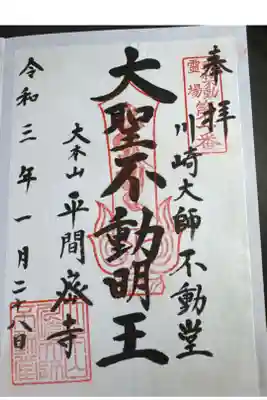 奉拝
川崎大師不動堂
大聖不動明王
大本山平間寺
令和三年一月二十八日